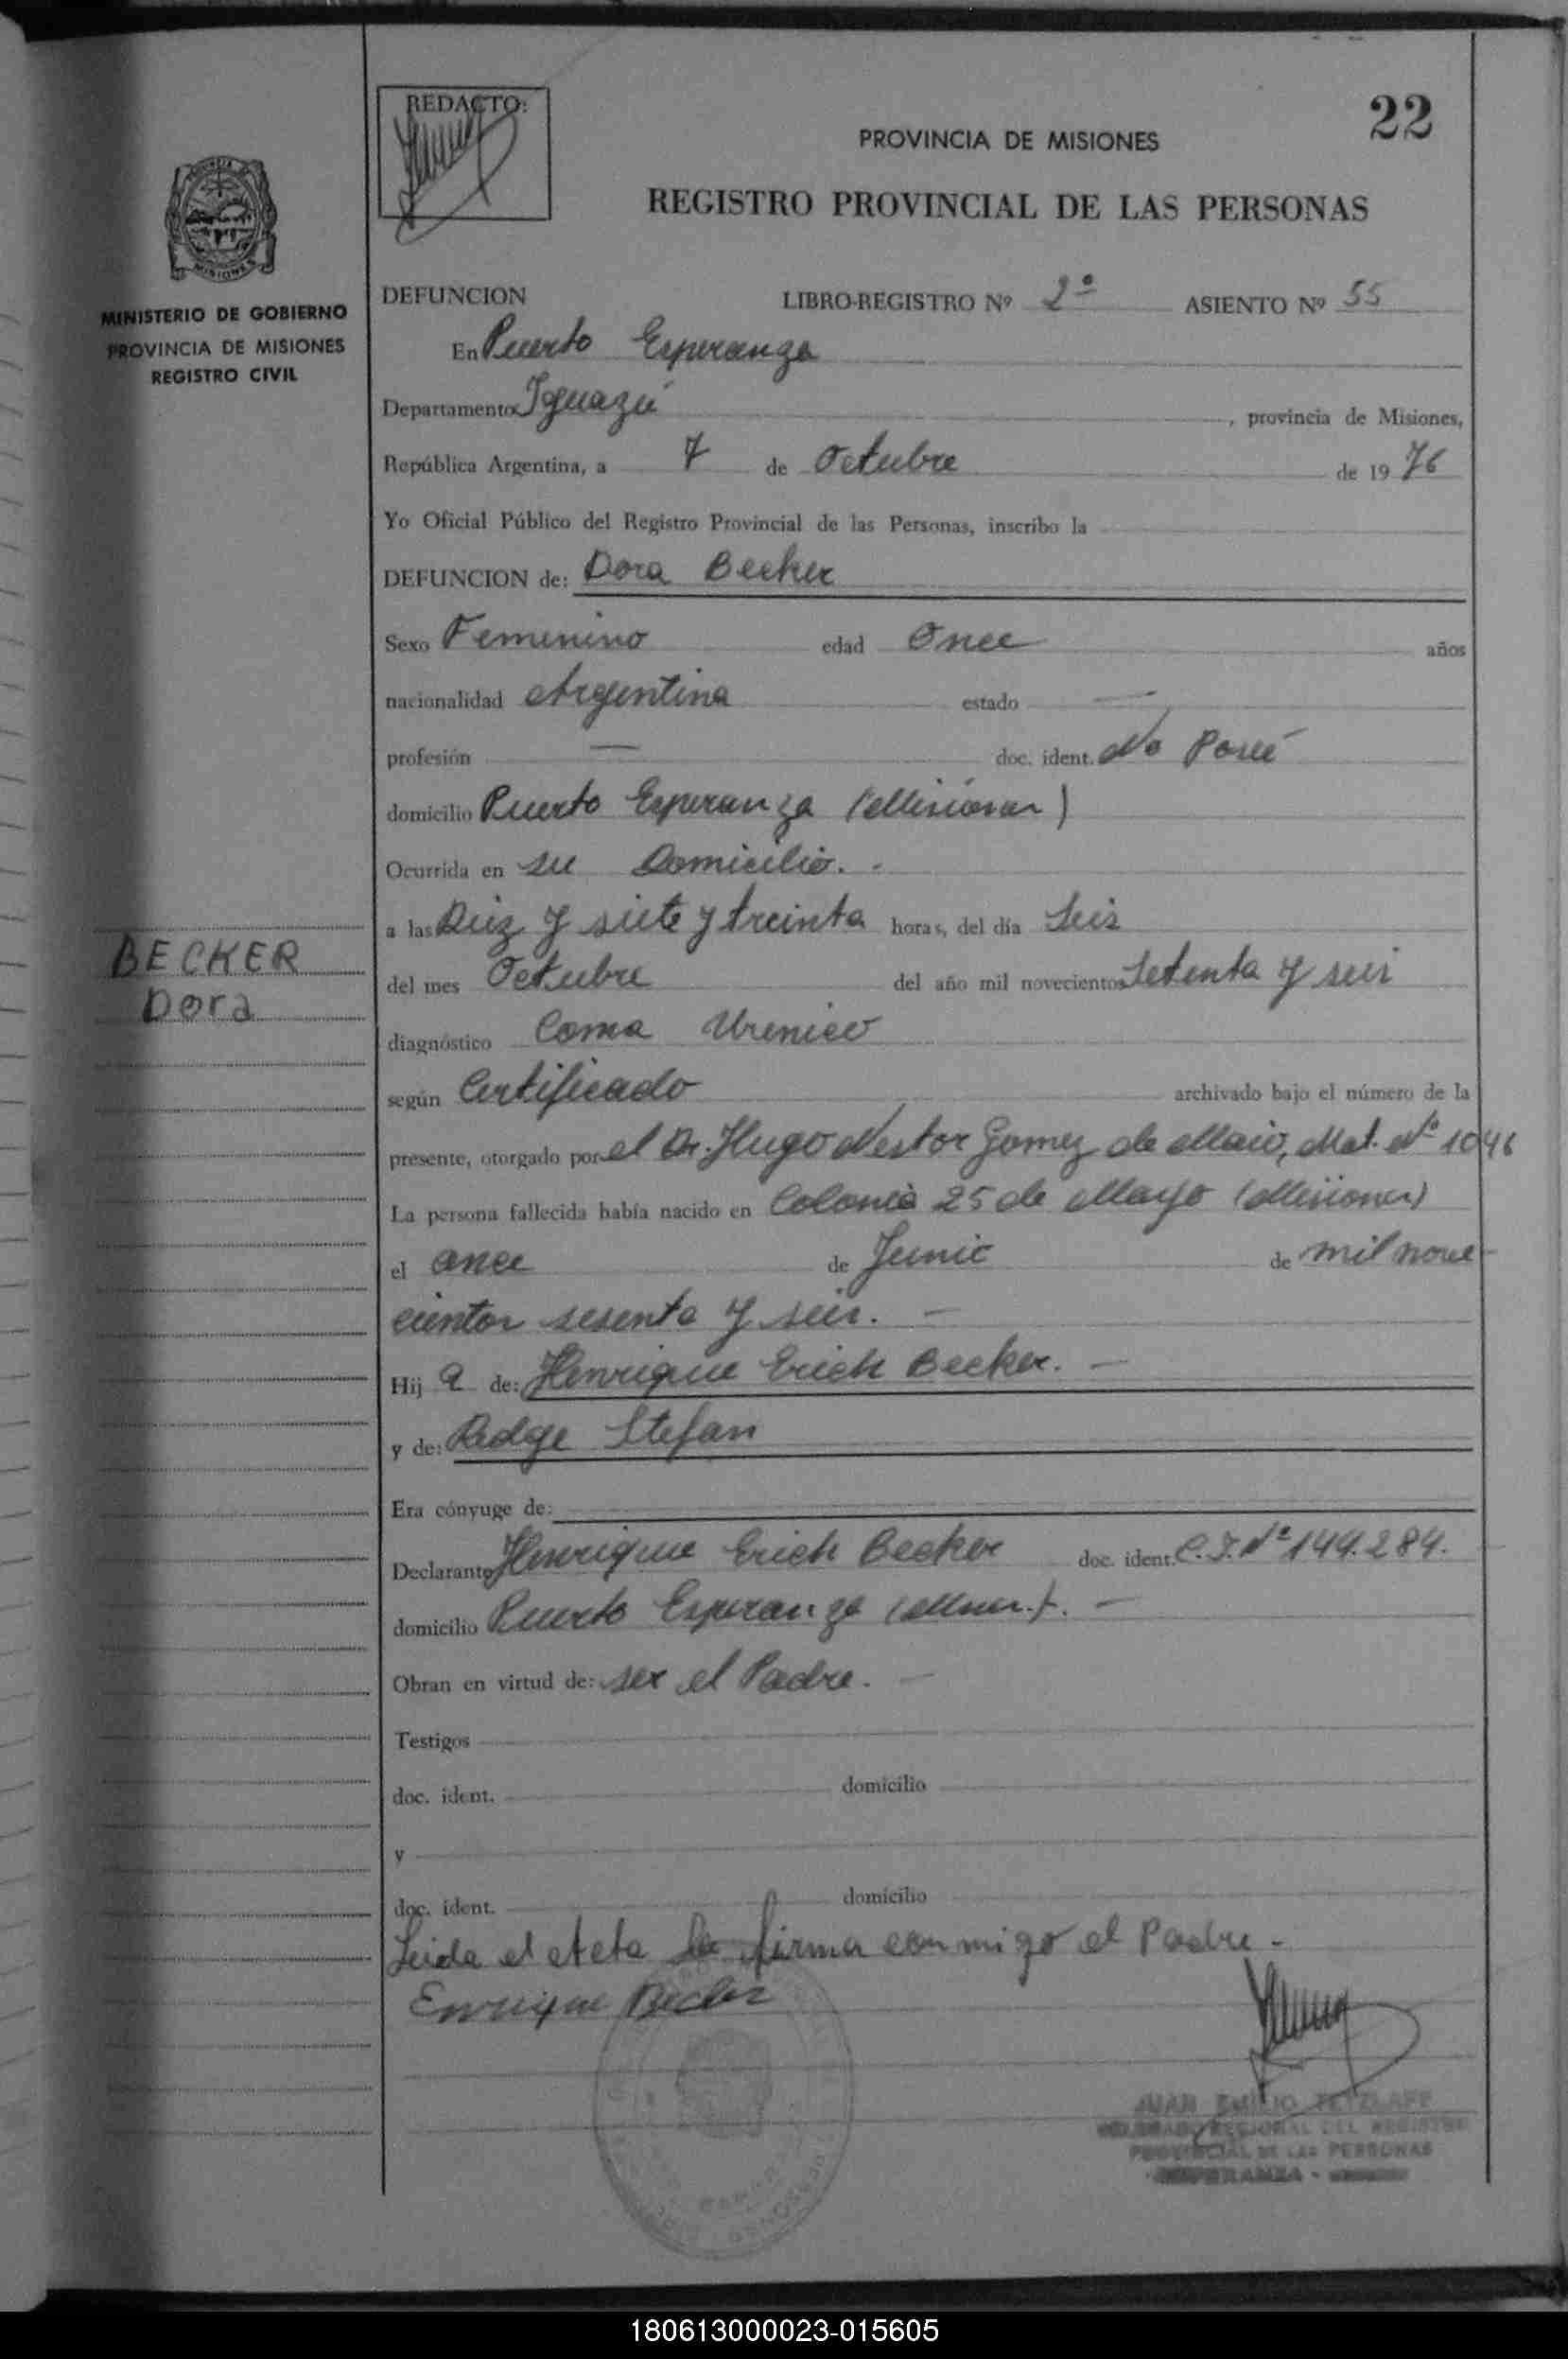 22
REDACTO:
PROVINCIA DE MISIONES
REGISTRO PROVINCIAL DE LAS PERSONAS
MISIONES
MINISTERIO DE GOBIERNO
PROVINCIA DE MISIONES
REGISTRO CIVIL
DEFUNCION LIBRO-REGISTRO Nº 2º ASIENTO Nº 55
En Puerto Esperanza
Departamento Iguazú, provincia de Misiones,
República Argentina, a 7 de Octubre de 1976
Yo Oficial Público del Registro Provincial de las Personas, inscribo la
DEFUNCION de: Dora Becker
Sexo Femenino edad Once años
nacionalidad Argentina estado —
profesión — doc. ident. No Poseé
domicilio Puerto Esperanza (Misiones)
Ocurrida en su Domicilio. -
a las Diez y siete y treinta horas, del día Seis
BECKER
Dora
del mes Octubre del año mil novecientos Setenta y seis
diagnóstico Coma Uremico
según Certificado archivado bajo el número de la
presente, otorgado por el Dr. Hugo Nestor Gomez de Maio, Mat. Nº 1046
La persona fallecida había nacido en Colonia 25 de Mayo (Misiones)
el once de Junio de mil nove-
cientos sesenta y seis. —
Hij a de: Henrique Erich Becker. —
y de: Stefan
Era cónyuge de:
Declarante Henrique Erich Becker doc. ident. C.I. Nº 149.284.
domicilio Puerto Esperanza (Mnes.). —
Obran en virtud de: ser el Padre. —
Testigos
doc. ident. domicilio
y
doc. ident. domicilio
Leida el Acta la firma conmigo el Padre -
Enrique Becker
JUAN EMILIO TETZLAFF
DELEGADO REGIONAL DEL REGISTRO
PROVINCIAL DE LAS PERSONAS
ESPERANZA -
180613000023-015605